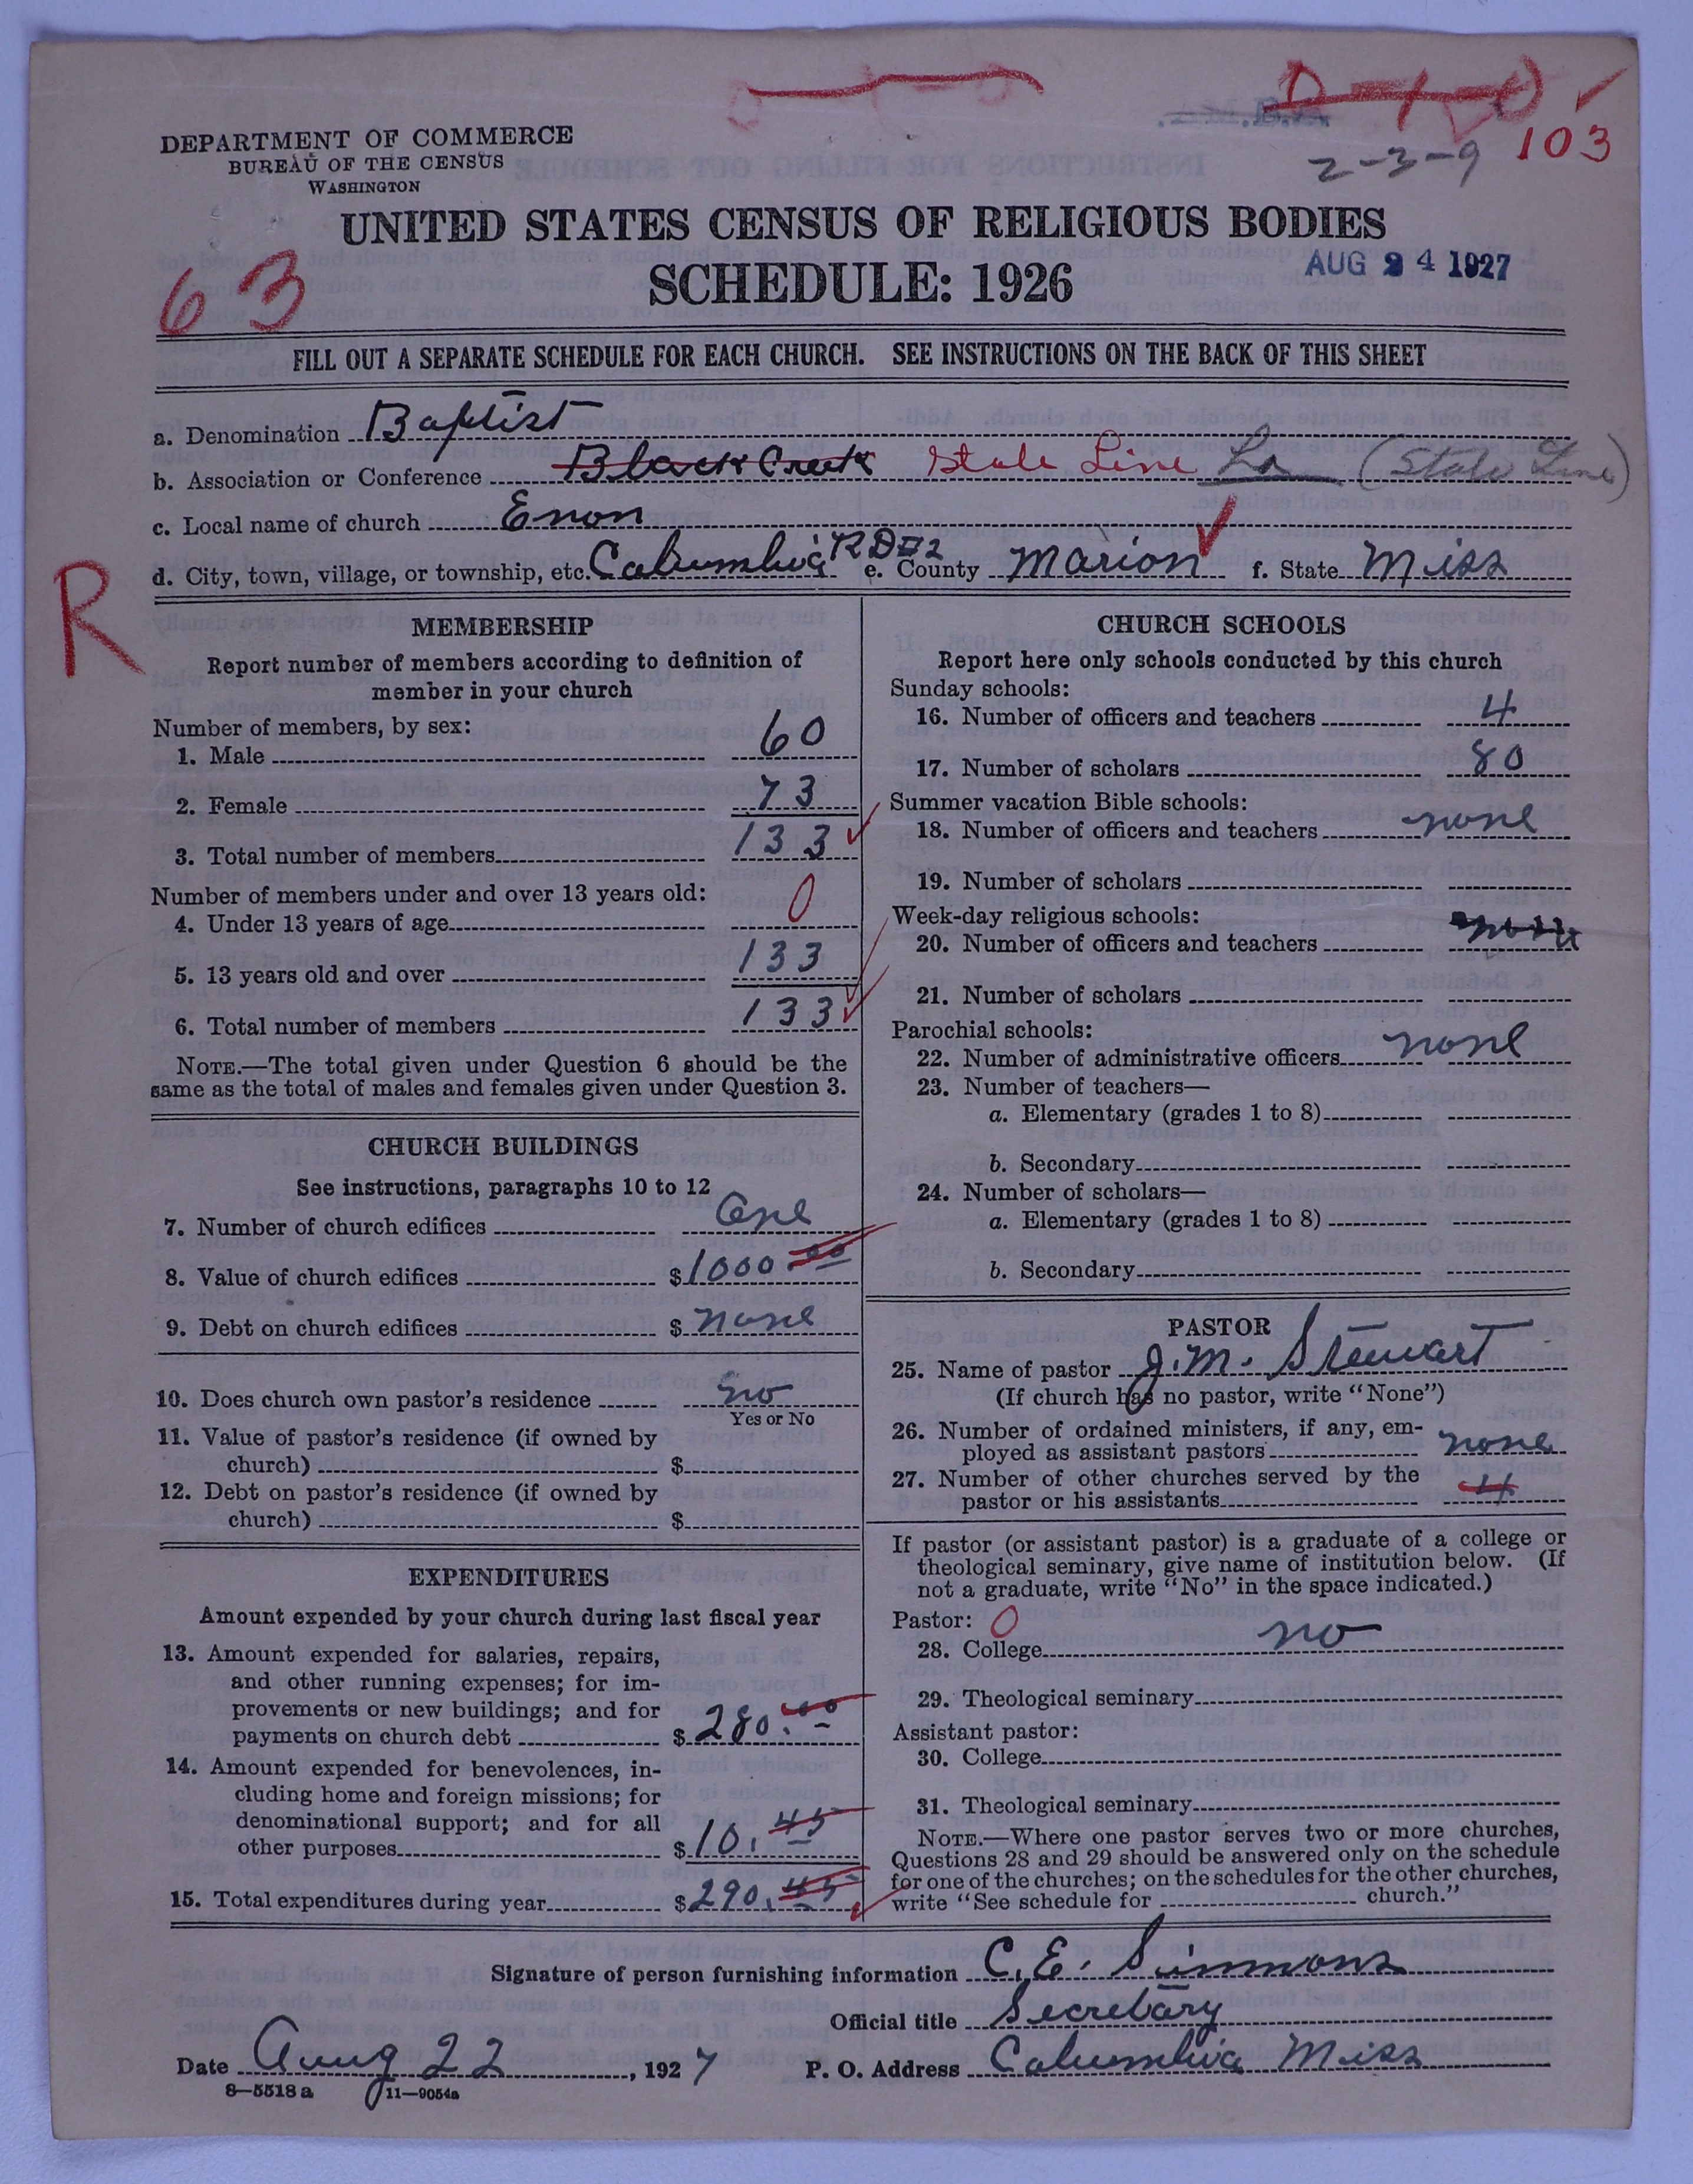 2-3-9 103
DEPARTMENT OF COMMERCE
BUREAU OF THE CENSUS
WASHINGTON
UNITED STATES CENSUS OF RELIGIOUS BODIES
SCHEDULE: 1926
AUG 24 1927
63
FILL OUT A SEPARATE SCHEDULE FOR EACH CHURCH. SEE INSTRUCTIONS ON THE BACK OF THIS SHEET
a. Denomination Baptist
b. Association or Conference Black Creek State Line La (State Line)
c. Local name of church Enon
d. City, town, village, or township, etc. Columbia RD#2 e. County Marion f. State Miss
R
MEMBERSHIP
Report number of members according to definition of
member in your church
Number of members, by sex:
1. Male 60
2. Female 73
3. Total number of members 133
Number of members under and over 13 years old:
4. Under 13 years of age 0
5. 13 years old and over 133
6. Total number of members 133
NOTE.—The total given under Question 6 should be the
same as the total of males and females given under Question 3.
CHURCH BUILDINGS
See instructions, paragraphs 10 to 12
7. Number of church edifices One
8. Value of church edifices $1000.00
9. Debt on church edifices $ none
10. Does church own pastor's residence no
Yes or No
11. Value of pastor's residence (if owned by
church) $
12. Debt on pastor's residence (if owned by
church) $
EXPENDITURES
Amount expended by your church during last fiscal year
13. Amount expended for salaries, repairs,
and other running expenses; for im-
provements or new buildings; and for
payments on church debt $280.00
14. Amount expended for benevolences, in-
cluding home and foreign missions; for
denominational support; and for all
other purposes $10.45
15. Total expenditures during year $290.45
CHURCH SCHOOLS
Report here only schools conducted by this church
Sunday schools:
16. Number of officers and teachers 4
17. Number of scholars 80
Summer vacation Bible schools:
18. Number of officers and teachers none
19. Number of scholars
Week-day religious schools:
20. Number of officers and teachers none
21. Number of scholars
Parochial schools:
22. Number of administrative officers none
23. Number of teachers—
a. Elementary (grades 1 to 8)
b. Secondary
24. Number of scholars—
a. Elementary (grades 1 to 8)
b. Secondary
PASTOR
25. Name of pastor J. M. Stewart
(If church has no pastor, write "None")
26. Number of ordained ministers, if any, em-
ployed as assistant pastors none
27. Number of other churches served by the
pastor or his assistants 4
If pastor (or assistant pastor) is a graduate of a college or
theological seminary, give name of institution below. (If
not a graduate, write "No" in the space indicated.)
Pastor: 0
28. College no
29. Theological seminary
Assistant pastor:
30. College
31. Theological seminary
NOTE.—Where one pastor serves two or more churches,
Questions 28 and 29 should be answered only on the schedule
for one of the churches; on the schedules for the other churches,
write "See schedule for church."
Signature of person furnishing information C. E. Simmons
Official title Secretary
Date Aug 22, 1927 P. O. Address Columbia Miss
8—5518 a 11—9054a